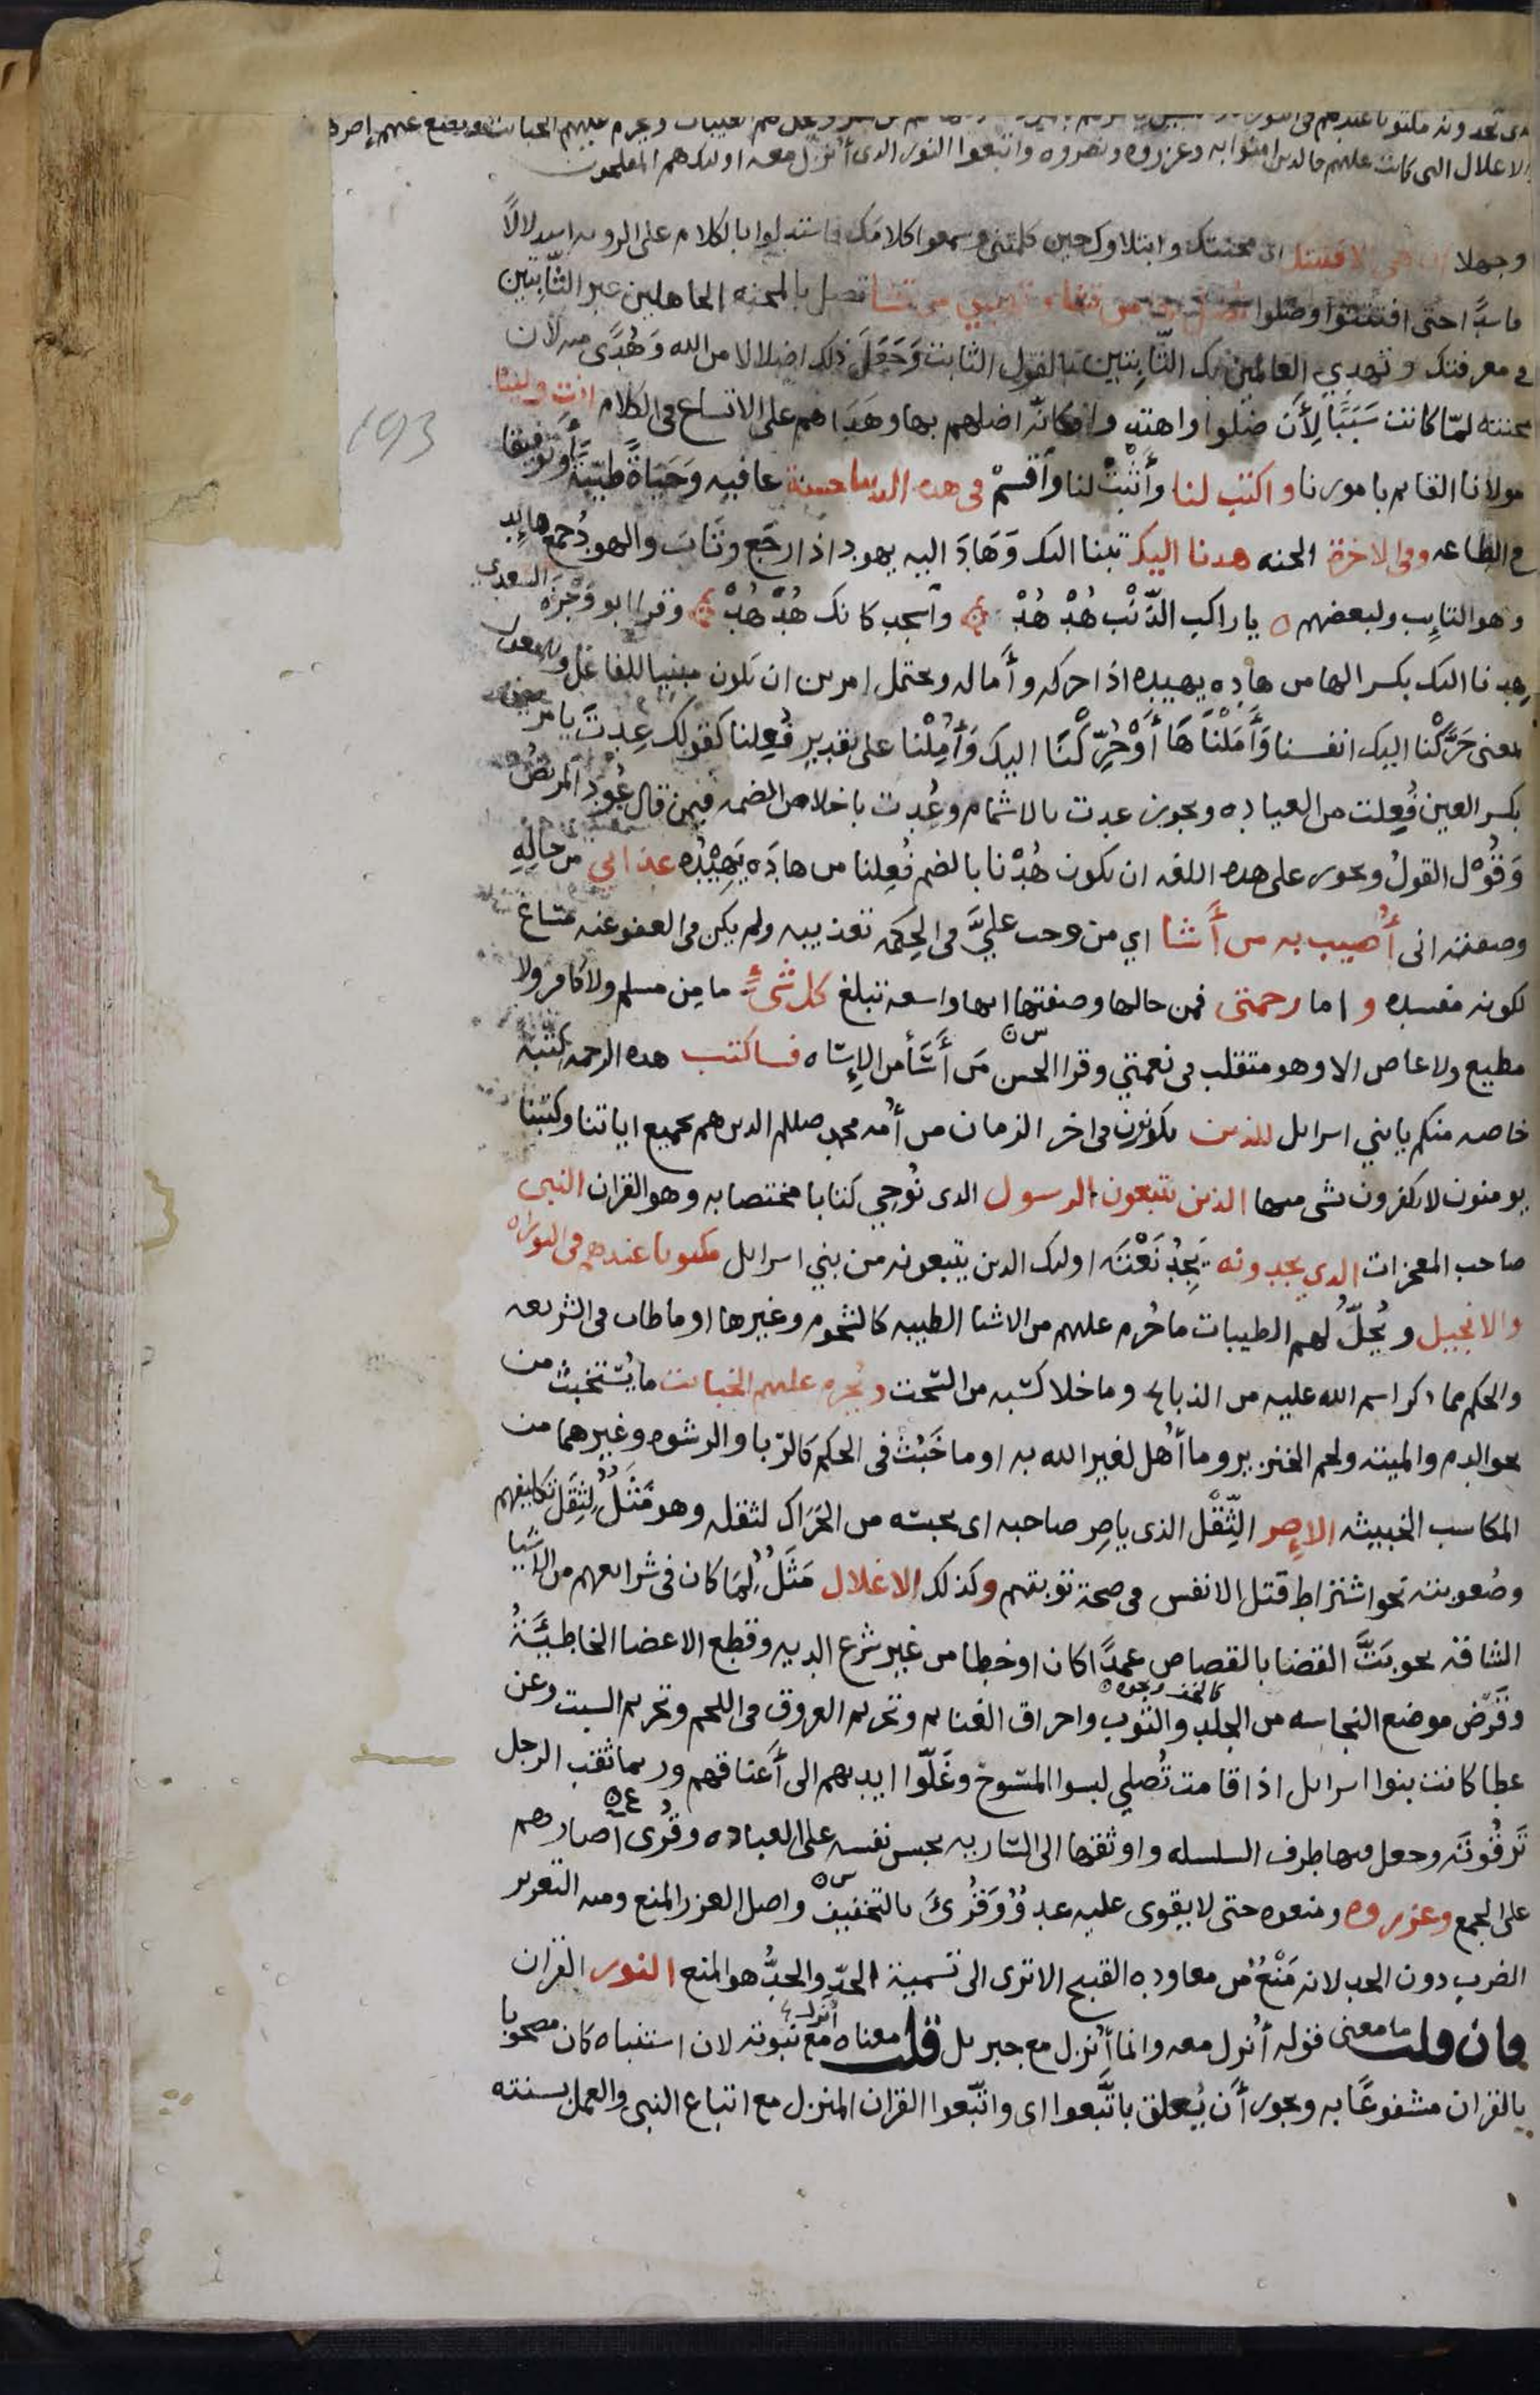 الاغلال التى كانت عليهم فالدين امنوا به وعزروه ونصروه واتبعوا النور الدى أنزل معه اولىك هم المفلحون
وجهلا ان هى الا فتنتك اى محنتك وابتلاوك حين كلمتنى وسمعوا كلامك فاستدلوا بالكلام على الرويه استدلالًا
فاسدًا حتى افتتنوا وضلوا تضل بها من تشاء وتهدي من تشا تضل بالمحنه الجاهلين غير الثَّابِتين
فى معرفتك وتهدي العالمين بك الثّابِتين بالقول الثابت وَجَعَلَ ذلك اضلالا من الله وَهُدًى منه لان
محنته لمّا كانت سَبَبًا لِأَن ضلوا واهتدوا فكانّه اضلهم بها وهَدَاهم على الاتساع فى الكلام انت ولينا
مولانا القايم بامورنا واكتب لنا وأَثْبِتْ لنا وٱقْسِمْ فى هده الدنيا حسنة عافيه وَحَيَاةً طيّبَةً وتوفيقا
فى الطاعه وفى الاخرة الجنه هدنا اليك تبنا اليك وَهَادَ اليه يهود اذا رجَع وتَابَ والهود جمع هايد
وهو التايب ولبعضهم ه يا راكب الذّنْب هُدْ هُدْ وٱسجد كانك هُدْهُدْ وقرا ابو وَجْزَه السعدي
هِدنا اليك بكسر الها من هاده يهيده اذا حركه وأَماله ويحتمل امرين ان يكون مبنيا للفاعل والمفعول
بمعنى حَرَّكْنا اليك انفسنا وَأَمَلْنَاهَا أَوْ حُرِّكْنَا اليك وَأُمِلْنا على تقدير فُعِلنا كقولك عِدتَ يا مريض
بكسر العين فُعِلت من العياده ويجوز عدت بالاشمام وعُدت باخلاص الضمه فيمن قال عُودَ المريضُ
وَقُوْل القولُ ويجوز على هده اللغه ان يكون هُدْنا بالضم فُعِلنا من هادَه يَهِيْدُه عذابي من حَالِهِ
وصفته انى أُصيب به من أَشا اي من وجب عليَّ فى الحِكمه تعذيبه ولم يكن فى العفو عنه مَسَاغ
لكونه مفسده واما رحمتى فمن حالها وصفتها انها واسعه تبلغ كل شيءٍ ما مِن مسلم ولا كافر ولا
مطيع ولا عاص الا وهو متقلب فى نعمتي وقرا الحسن مَن أَسَأَ من الإِسَاه فساكتب هده الرحمه كتبه
خاصه منكم يا بني اسرايل للذين يكونون فى اخر الزمان من أُمه محمد صللم الدين هم بجميع اياتنا وكتبنا
يومنون لا يكفرون بشى منها الذين يتبعون الرسول الدى نُوحِي كتابا مختصا به وهو القران النبى
صاحب المعجزات الدي يجدونه يَجِدُ نَعْتَه اوليك الدين يتبعونه من بني اسرايل مكتوبا عندهم فى التوراه
والانجيل ويُحلّ لهم الطيبات ما حُرم عليهم من الاشيا الطيبه كالشحوم وغيرها او ما طاب فى الشريعه
والحكم مما دكر اسم الله عليه من الذبايح وما خلا كسبه من السّحت ويُحرم عليهم الخبايث ما يُسْتخبث من
نحو الدم والميته ولحم الخنزير وما أُهل لغير الله به او ما خَبُثَ فى الحكم كالرّبا والرشوه وغيرهما من
المكاسب الخبيثه الإصر الثِّقْل الذى ياصِر صاحبه اى يحبسه من الحَرَاك لثقله وهو مَثَلٌ لِثِقَل تكاليفهم
وصُعوبته نحو اشتراط قتل الانفس فى صحة توبتهم وكذلك الاغلال مَثَلٌ لِمَا كان فى شرايعهم من الاشيا
الشاقه نحو بَتَّ القضا بالقصاص عمدًا كان او خطا من غير شرع الديه وقطع الاعضا الخاطِئَة
وقَرْض موضع النجاسه من الجلد والثوب واحراق الغنايم وتحريم العروق فى اللحم وتحريم السبت وعن
عطا كانت بنوا اسرايل اذا قامت تُصلي لبسوا المسُوحَ وغَلّوا ايديهم الى أَعناقهم وربما ثقب الرجل
تَرقُوتَه وجعل فيها طرف السلسله واوثقها الى السّاريه يحبس نفسه على العباده وقُرى آصارهم
على الجمع وعزروه ومنعوه حتى لا يقوى عليه عدوٌّ وَقُرِئَ بالتخفيف واصل العزر المنع ومنه التعزير
الضرب دون الحد لانه مَنْعٌ من معاوده القبيح الا ترى الى تسمية الحدّ والحدُّ هو المنع النور القران
فان قلت ما معنى قوله أُنزِل معه وانما أُنزل مع جبريل قلت معناه أنزل مع نبوته لان استنباه كان مصحوبا
بالقران مشفوعًا به ويجوز أَن يُعلق باتَّبعوا اى واتّبعوا القران المنزل مع اتباع النبي والعمل بسنته
193